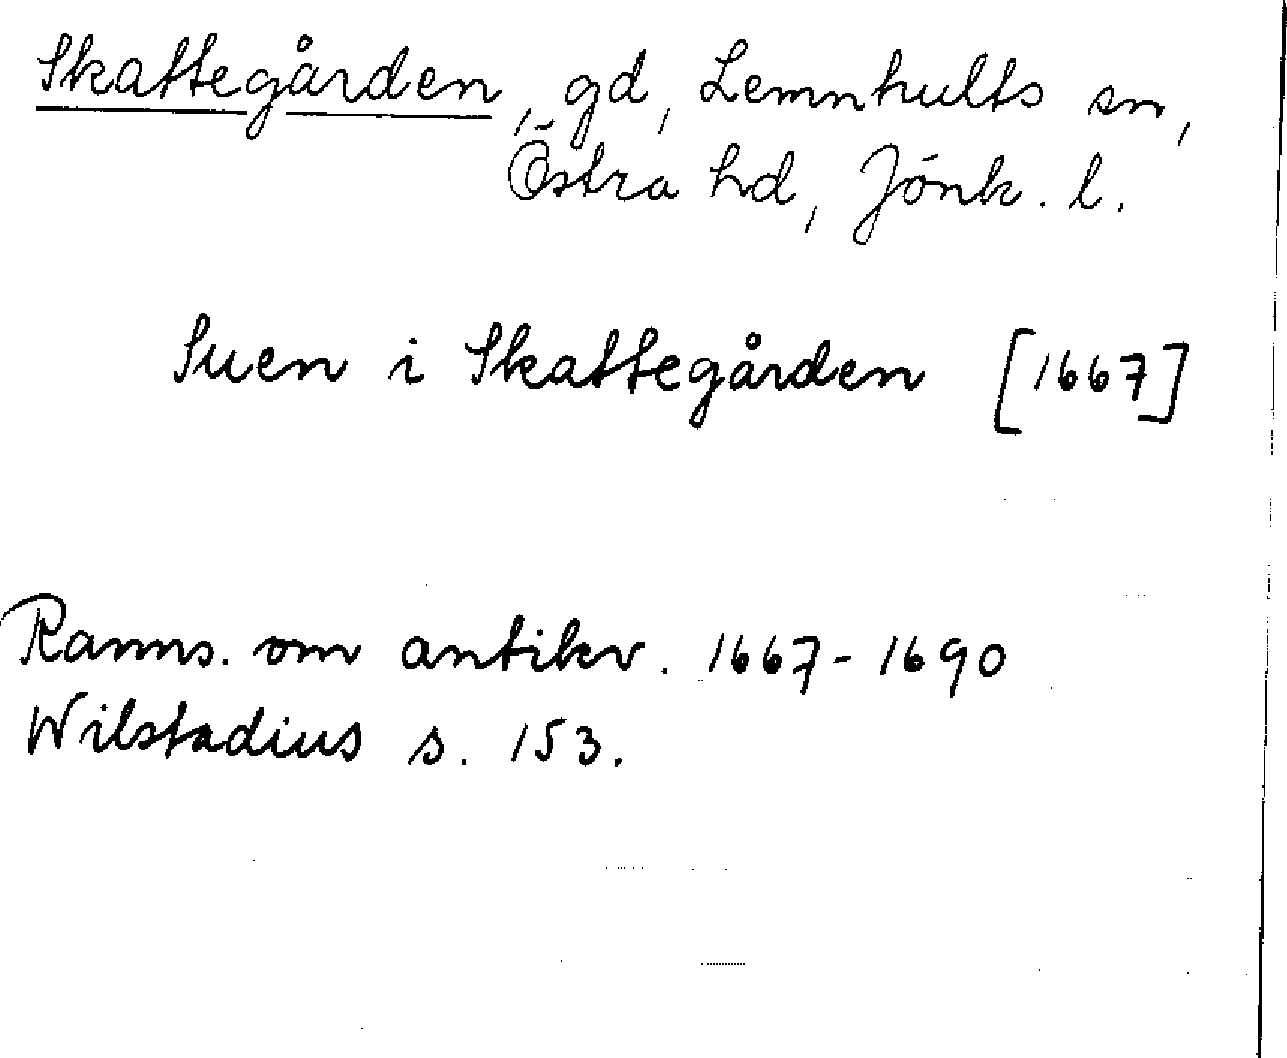 Skattegården, gd, Lemnhults sn,
Östra hd, Jönk. l.
Suen i Skattegården [1667]
Ranns. om antikv. 1667-1690
Wilstadius s. 153.